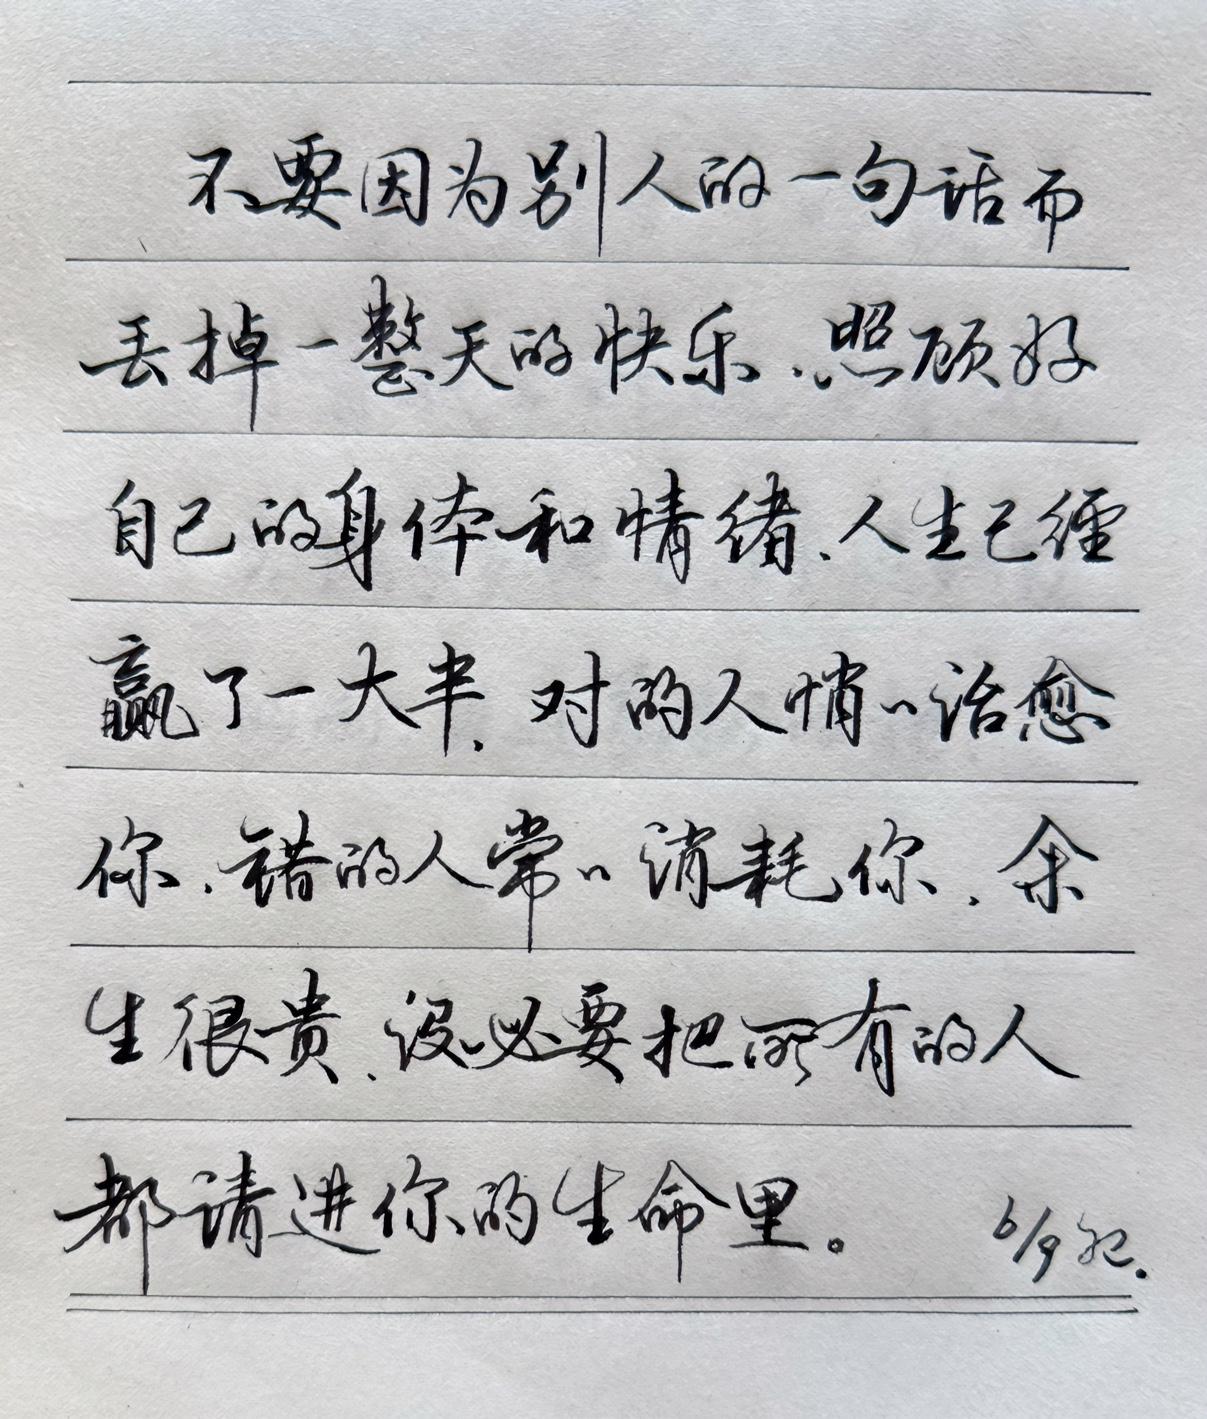 不要因为别人的一句话而
丢掉一整天的快乐、照顾好
自己的身体和情绪、人生已经
赢了一大半、对的人悄〃治愈
你、错的人常〃消耗你、余
生很贵、没必要把所有的人
都请进你的生命里。 6/9